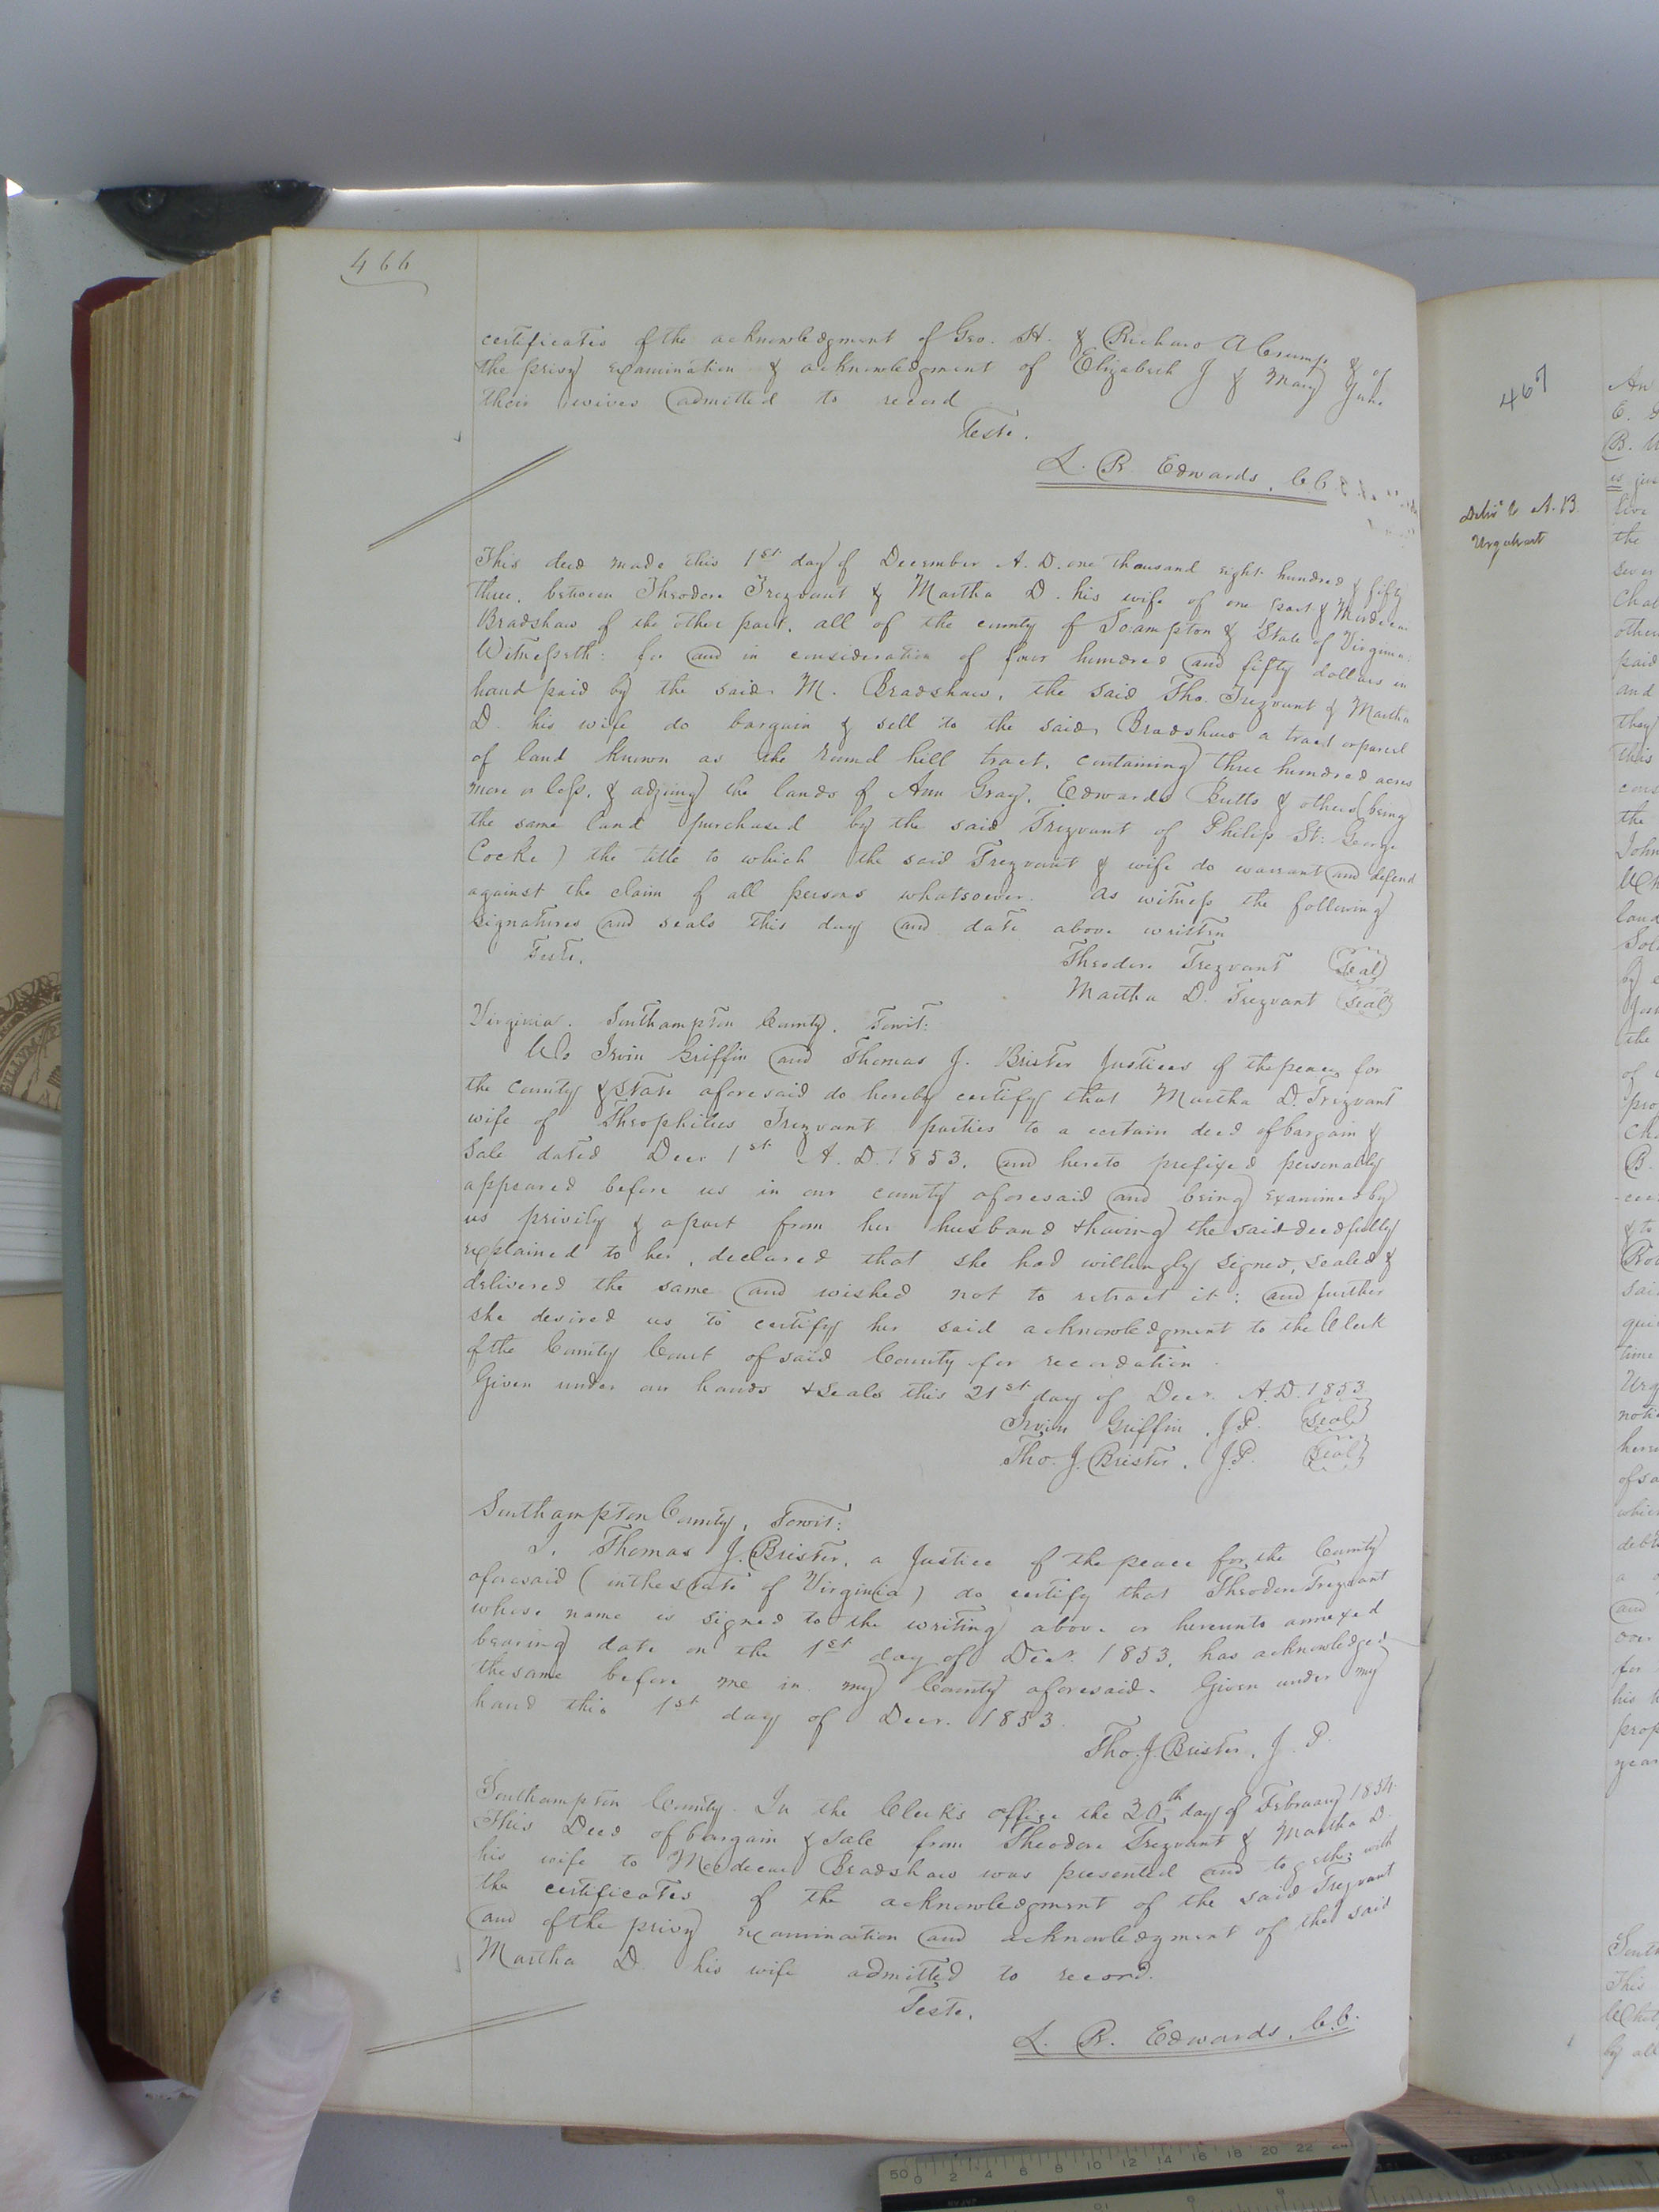 466
certificates of the acknowledgment of Geo. H. & Richard A Crump & of
the privy examination & acknowledgment of Elizabeth J & Mary Jane
their wives admitted to record
Teste.
L. R Edwards, C.C
This deed made this 1st day of December A. D. one thousand eight hundred & fifty
three, between Theodore Trezvant & Martha D. his wife of one part &
Bradshaw of the other part, all of the county of So.ampton & State of Virginia:
Witnesseth: for and in consideration of four hundred and fifty dollars in
hand paid by the said M. Bradshaw, the said Tho. Trezvant & Martha
D. his wife do bargain & sell to the said Bradshaw a tract or parcel
of land known as the round hill tract, containing three hundred acres
more or less, & adjoing the lands of Ann Gray, Edwards Butts & others (being
the same land purchased by the said Trezvant of Philip St: George
Cocke) the title to which the said Trezvant & wife do warrant and defend
against the claim of all persons whatsoever. As witness the following
signatures and seals this day and date above written
Teste.
Theodore Trezvant (seal)
Martha D. Trezvant (seal)
Virginia. Southampton County, Towit:
We Irvin Griffin and Thomas J. Brister Justices of the peace for
the county & State aforesaid do hereby certify that Martha D. Trezvant
wife of Theophilus Trezvant parties to a certain deed of bargain &
Sale dated Decr 1st A. D. 1853, and hereto prefixed personally
appeared before us in our county aforesaid and being examined by
us privily & apart from her husband & having the said deed fully
explained to her, declared that she had willingly signed, sealed &
delivered the same and wished not to retract it: and further
she desired us to certify her said acknowledgment to the Clerk
of the County Court of said County for recordation.
Given under our hands & seals this 21st day of Decr. A.D. 1853
Irvin Griffin, J.P. (seal)
Tho. J. Brister, J.P. (seal)
Southampton County, Towit:
I, Thomas J. Brister, a Justice of the peace for the County
aforesaid (in the State of Virginia) do certify that Theodore Trezvant
whose name is signed to the writing above or hereunto annexed
bearing date on the 1st day of Decr. 1853, has acknowledged
the same before me in my County aforesaid. Given under my
hand this 1st day of Decr. 1853.
Tho. J. Brister, J. P.
Southampton County. In the Clerk's office the 20th day of February 1854.
This Deed of bargain & sale from Theodore Trezvant & Martha D.
his wife to Bradshaw was presented and together with
the certificates of the acknowledgment of the said Trezvant
and of the privy examination and acknowledgment of the said
Martha D. his wife admitted to record.
Teste.
L. R. Edwards, C.C.
467
Deliv'd to A. B.
Urquhart
An
C.
B.
is
the
other
paid
and
they
this
the
John
land
by
the
of
B.
& to
said
time
Urq
a
and
over
for
his
prop
year
South
This
by all
50 0 2 4 6 8 10 12 14 16 18 20 22
JAPAN